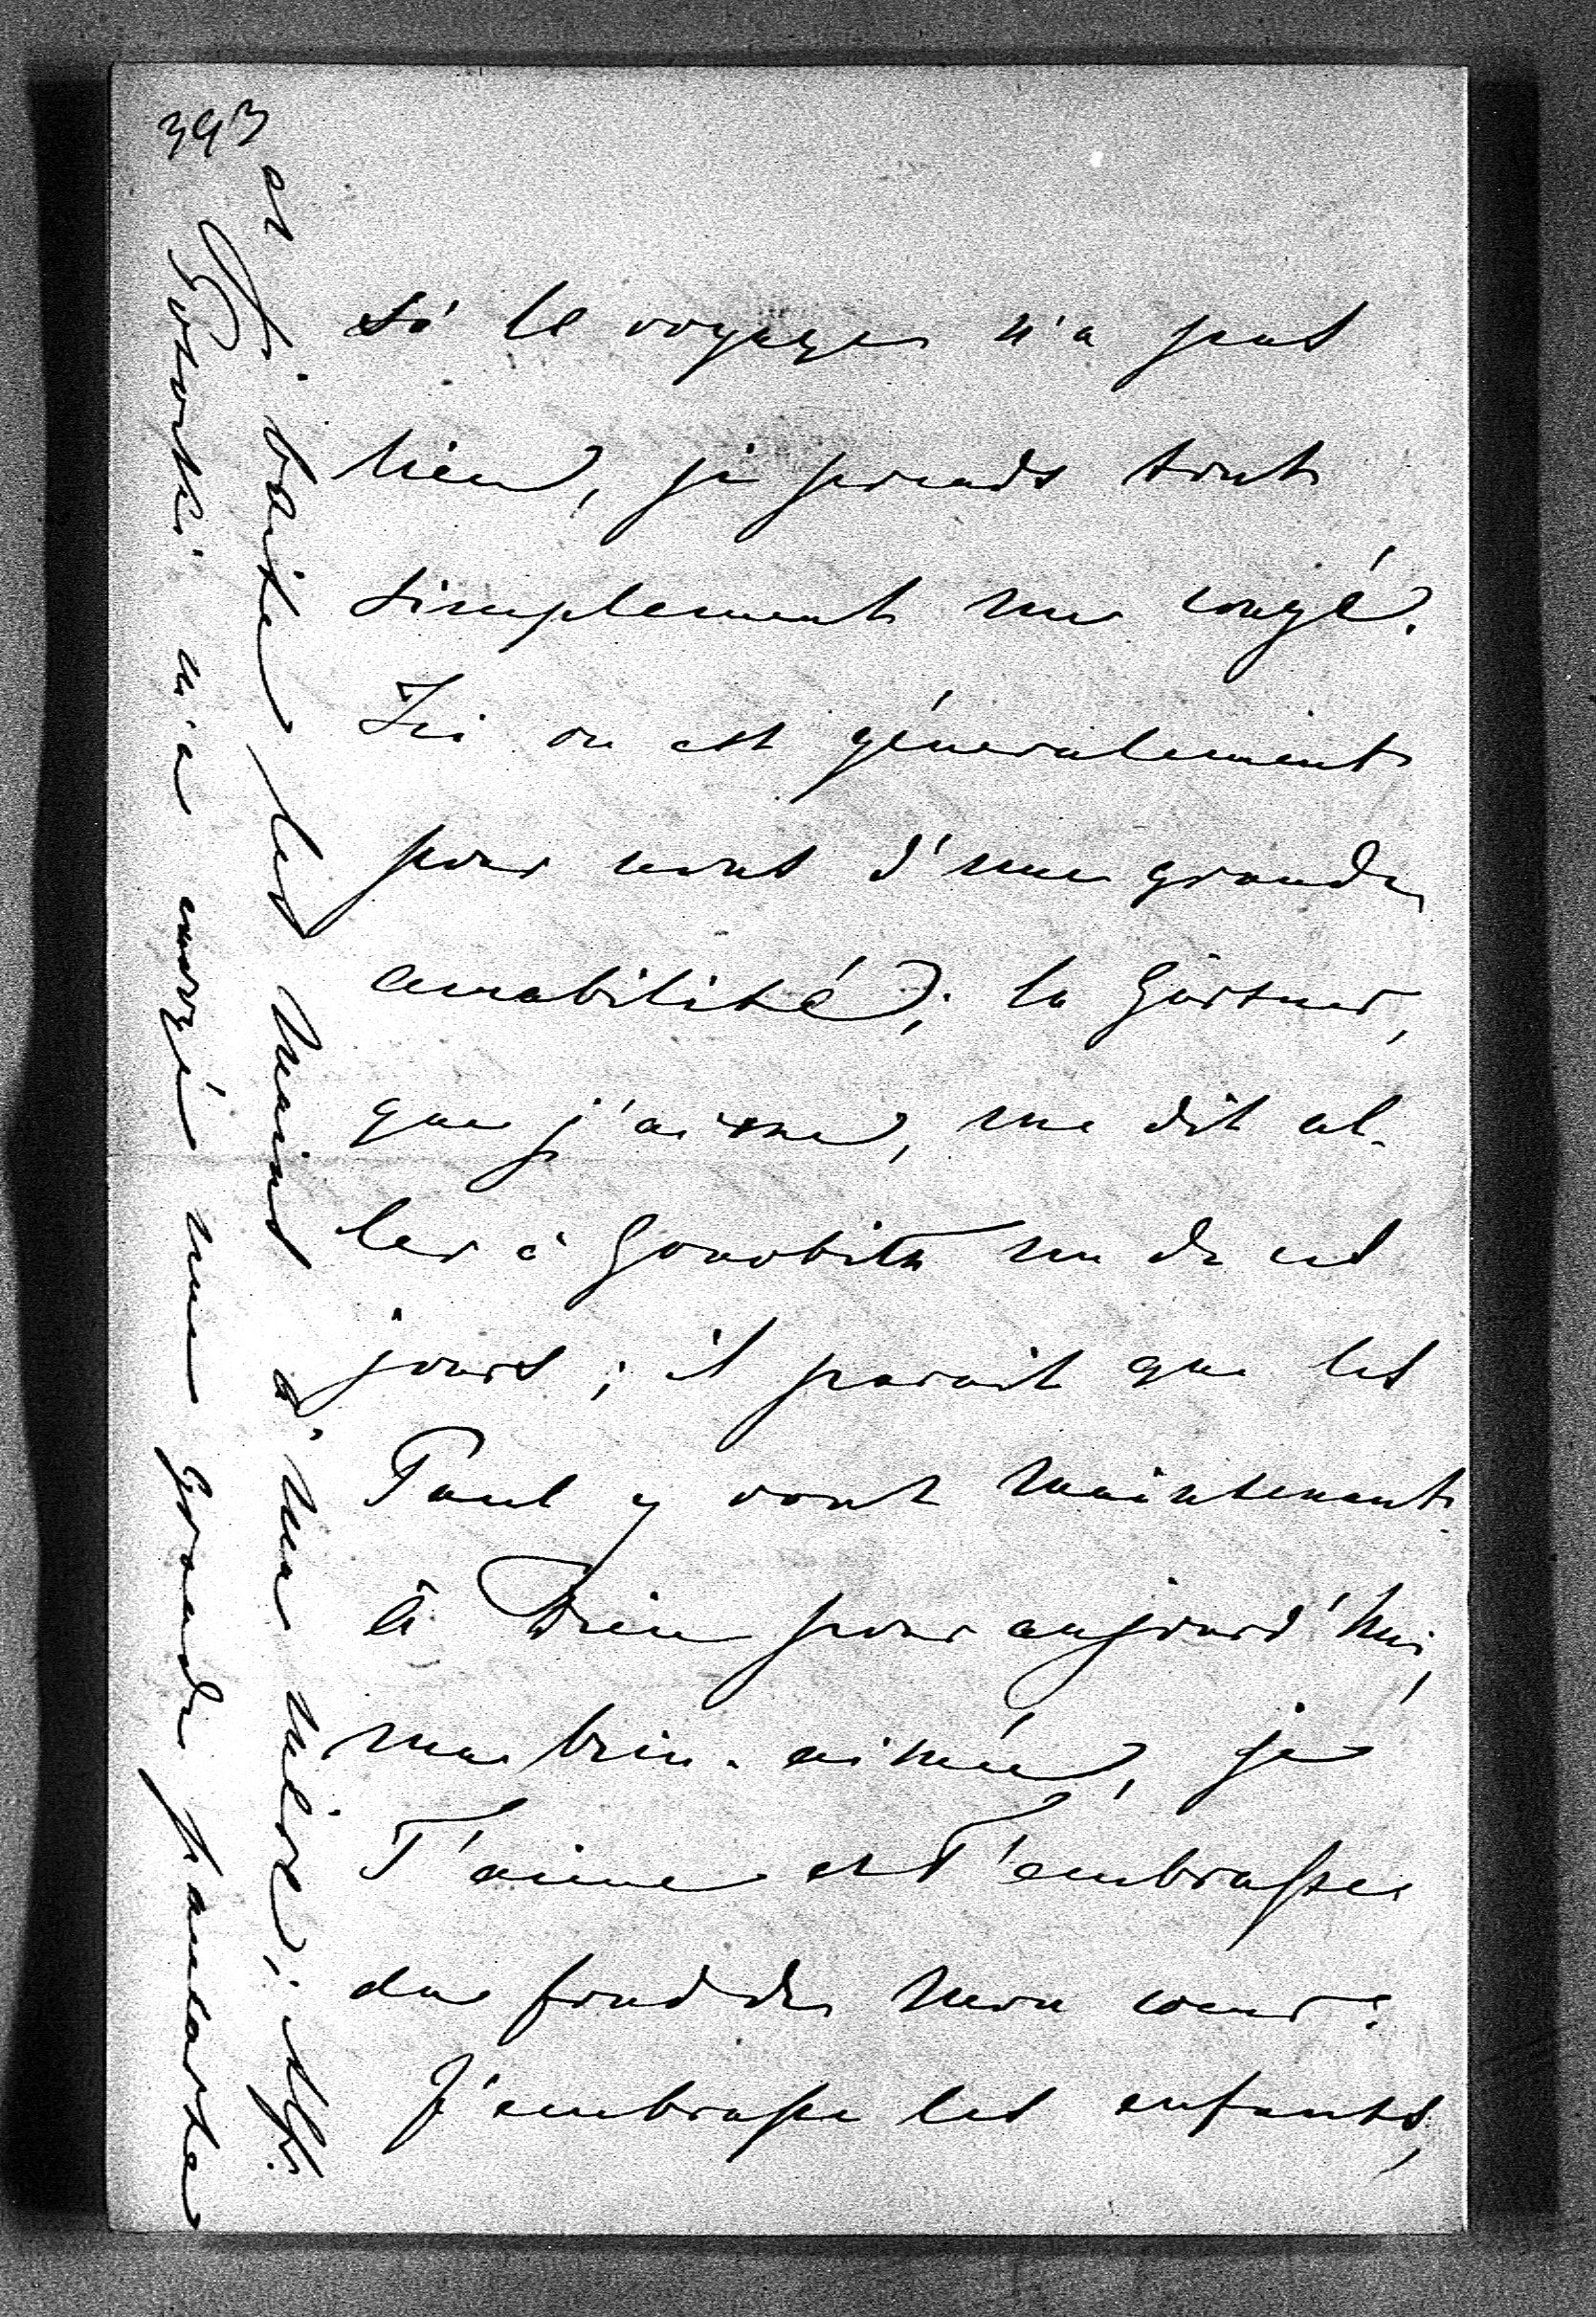 393
si le voyage n'a pas
lieu, je prends tout
simplement un congé.
Ici on est généralement
pour nous d'une grande
amabilité; la Gärtner,
que j'aime, me dit al-
ler à Gonobitz un de ces
jours; il parait que les
Paul y vont maintenant.
à Dieu pour aujourd'hui,
ma bien-aimée, je
T'aime et T'embrasse
du fond de mon coeur.
J'embrasse les enfants,
et je baise les mains à ma mère;
m'a envoyé une grande pancarte